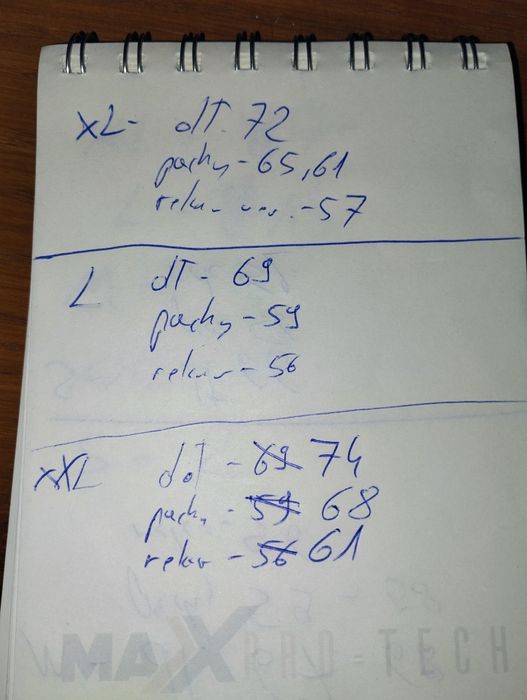 XL - dł. 72
pachy - 65,61
rękaw - 57
L dł - 69
pachy - 59
rękaw - 56
XXL dł - 69 74
pachy - 59 68
rękaw - 56 61
MAXXPRO-TECH